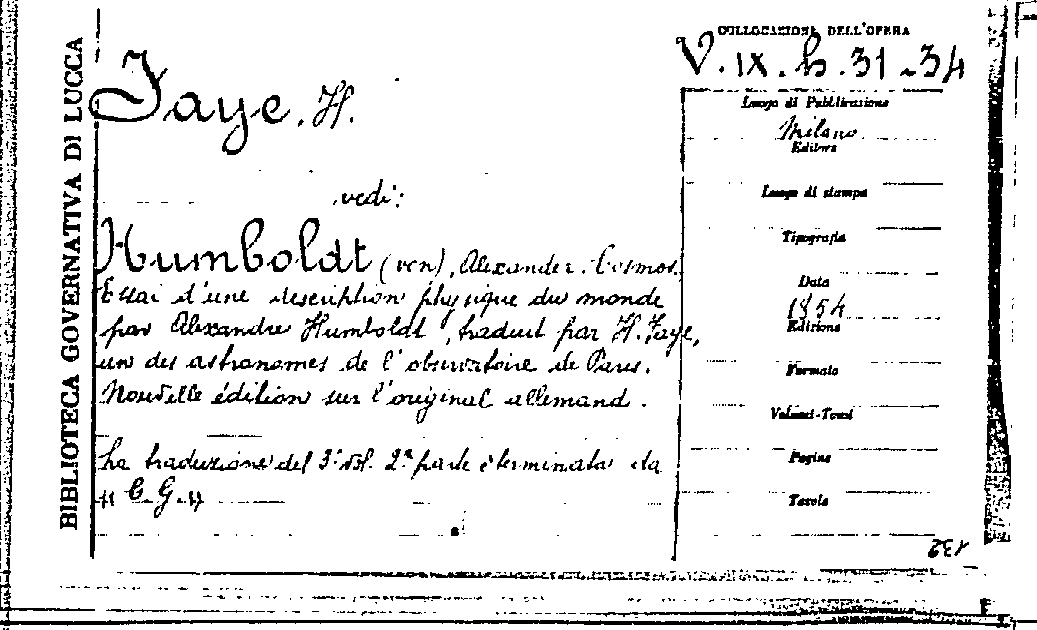 BIBLIOTECA GOVERNATIVA DI LUCCA
COLLOCAZIONE DELL'OPERA
V. IX. h. 31-34
Faye, H.
vedi:
Humboldt (von), Alexander. Cosmos.
Essai d'une description physique du monde
par Alexandre Humboldt, traduit par H. Faye,
un des astronomes de l'observatoire de Paris.
Nouvelle édition sur l'original allemand.
La traduzione del 3° vol. 2ª parte è terminata da
"C. G."
Luogo di Pubblicazione
Milano
Editore
Luogo di stampa
Tipografia
Data
1854
Edizione
Formato
Volumi-Tomi
Pagine
Tavole